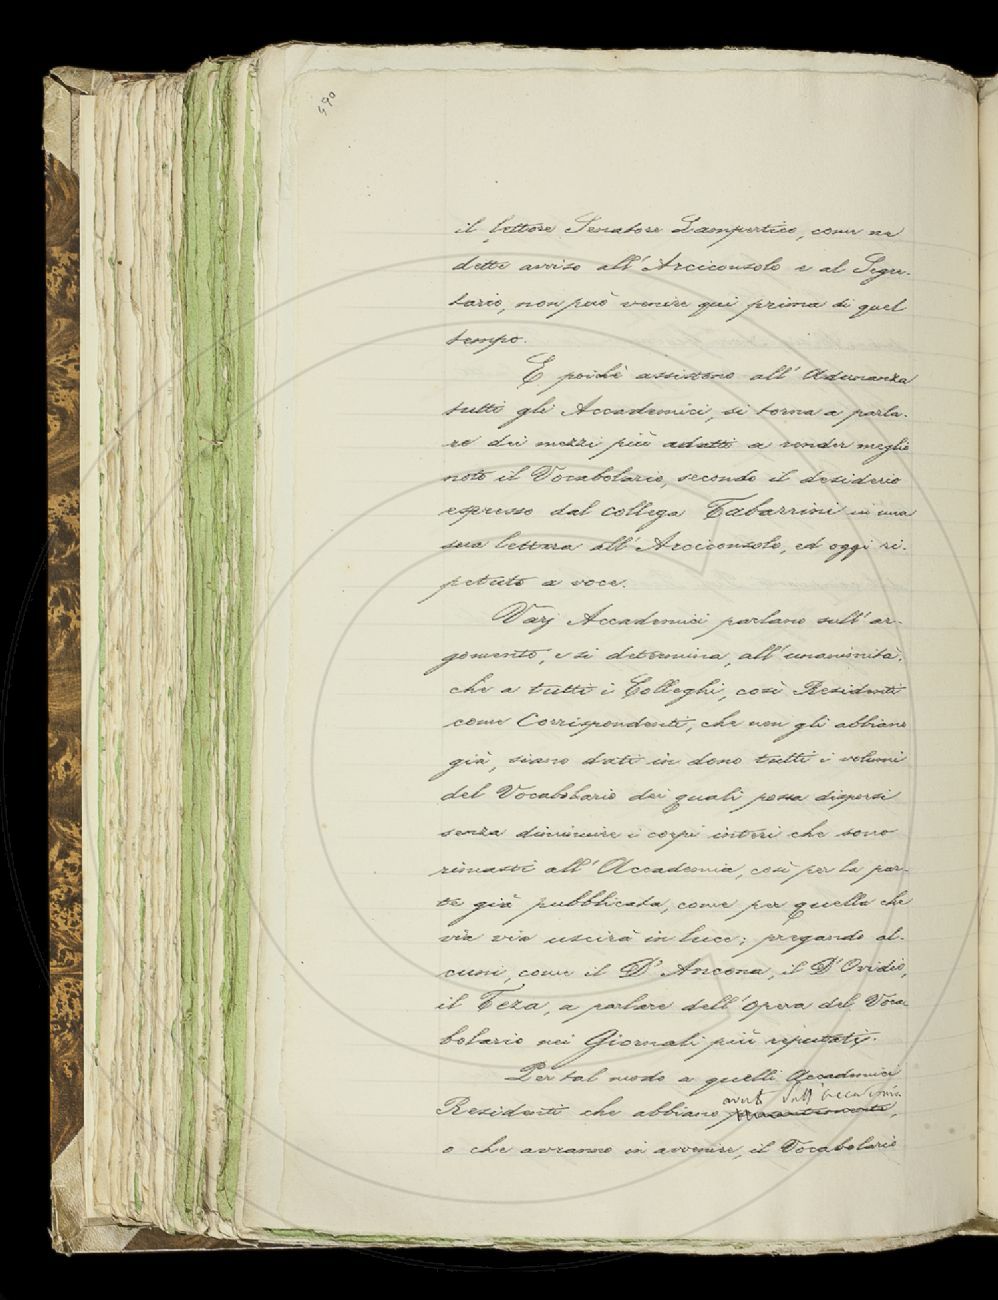 490
il lettore Senatore Lampertico, come ne
dette avviso all'Arciconsolo e al Segre-
tario, non può venire qui prima di quel
tempo.
E poichè assistono all'Adunanza
tutti gli Accademici, si torna a parla-
re dei mezzi più adatti a render meglio
noto il Vocabolario, secondo il desiderio
espresso dal collega Tabarrini in una
sua lettera all'Arciconsolo, ed oggi ri-
petuto a voce.
Varj Accademici parlano sull'ar-
gomento, e si determina, all'unanimità,
che a tutti i Colleghi, così Residenti
come Corrispondenti, che non gli abbiano
già, siano dati in dono tutti i volumi
del Vocabolario dei quali possa disporsi
senza diminuire i corpi interi che sono
rimasti all'Accademia, così per la par-
te già pubblicata, come per quella che
via via uscirà in luce; pregando al-
cuni, come il D'Ancona, il D'Ovidio,
il Teza, a parlare dell'Opera del Voca
bolario nei Giornali più reputati.
Per tal modo a quelli Accademici
avuto dall'Accademia
Residenti che abbiano
o che avranno in avvenire, il Vocabolario